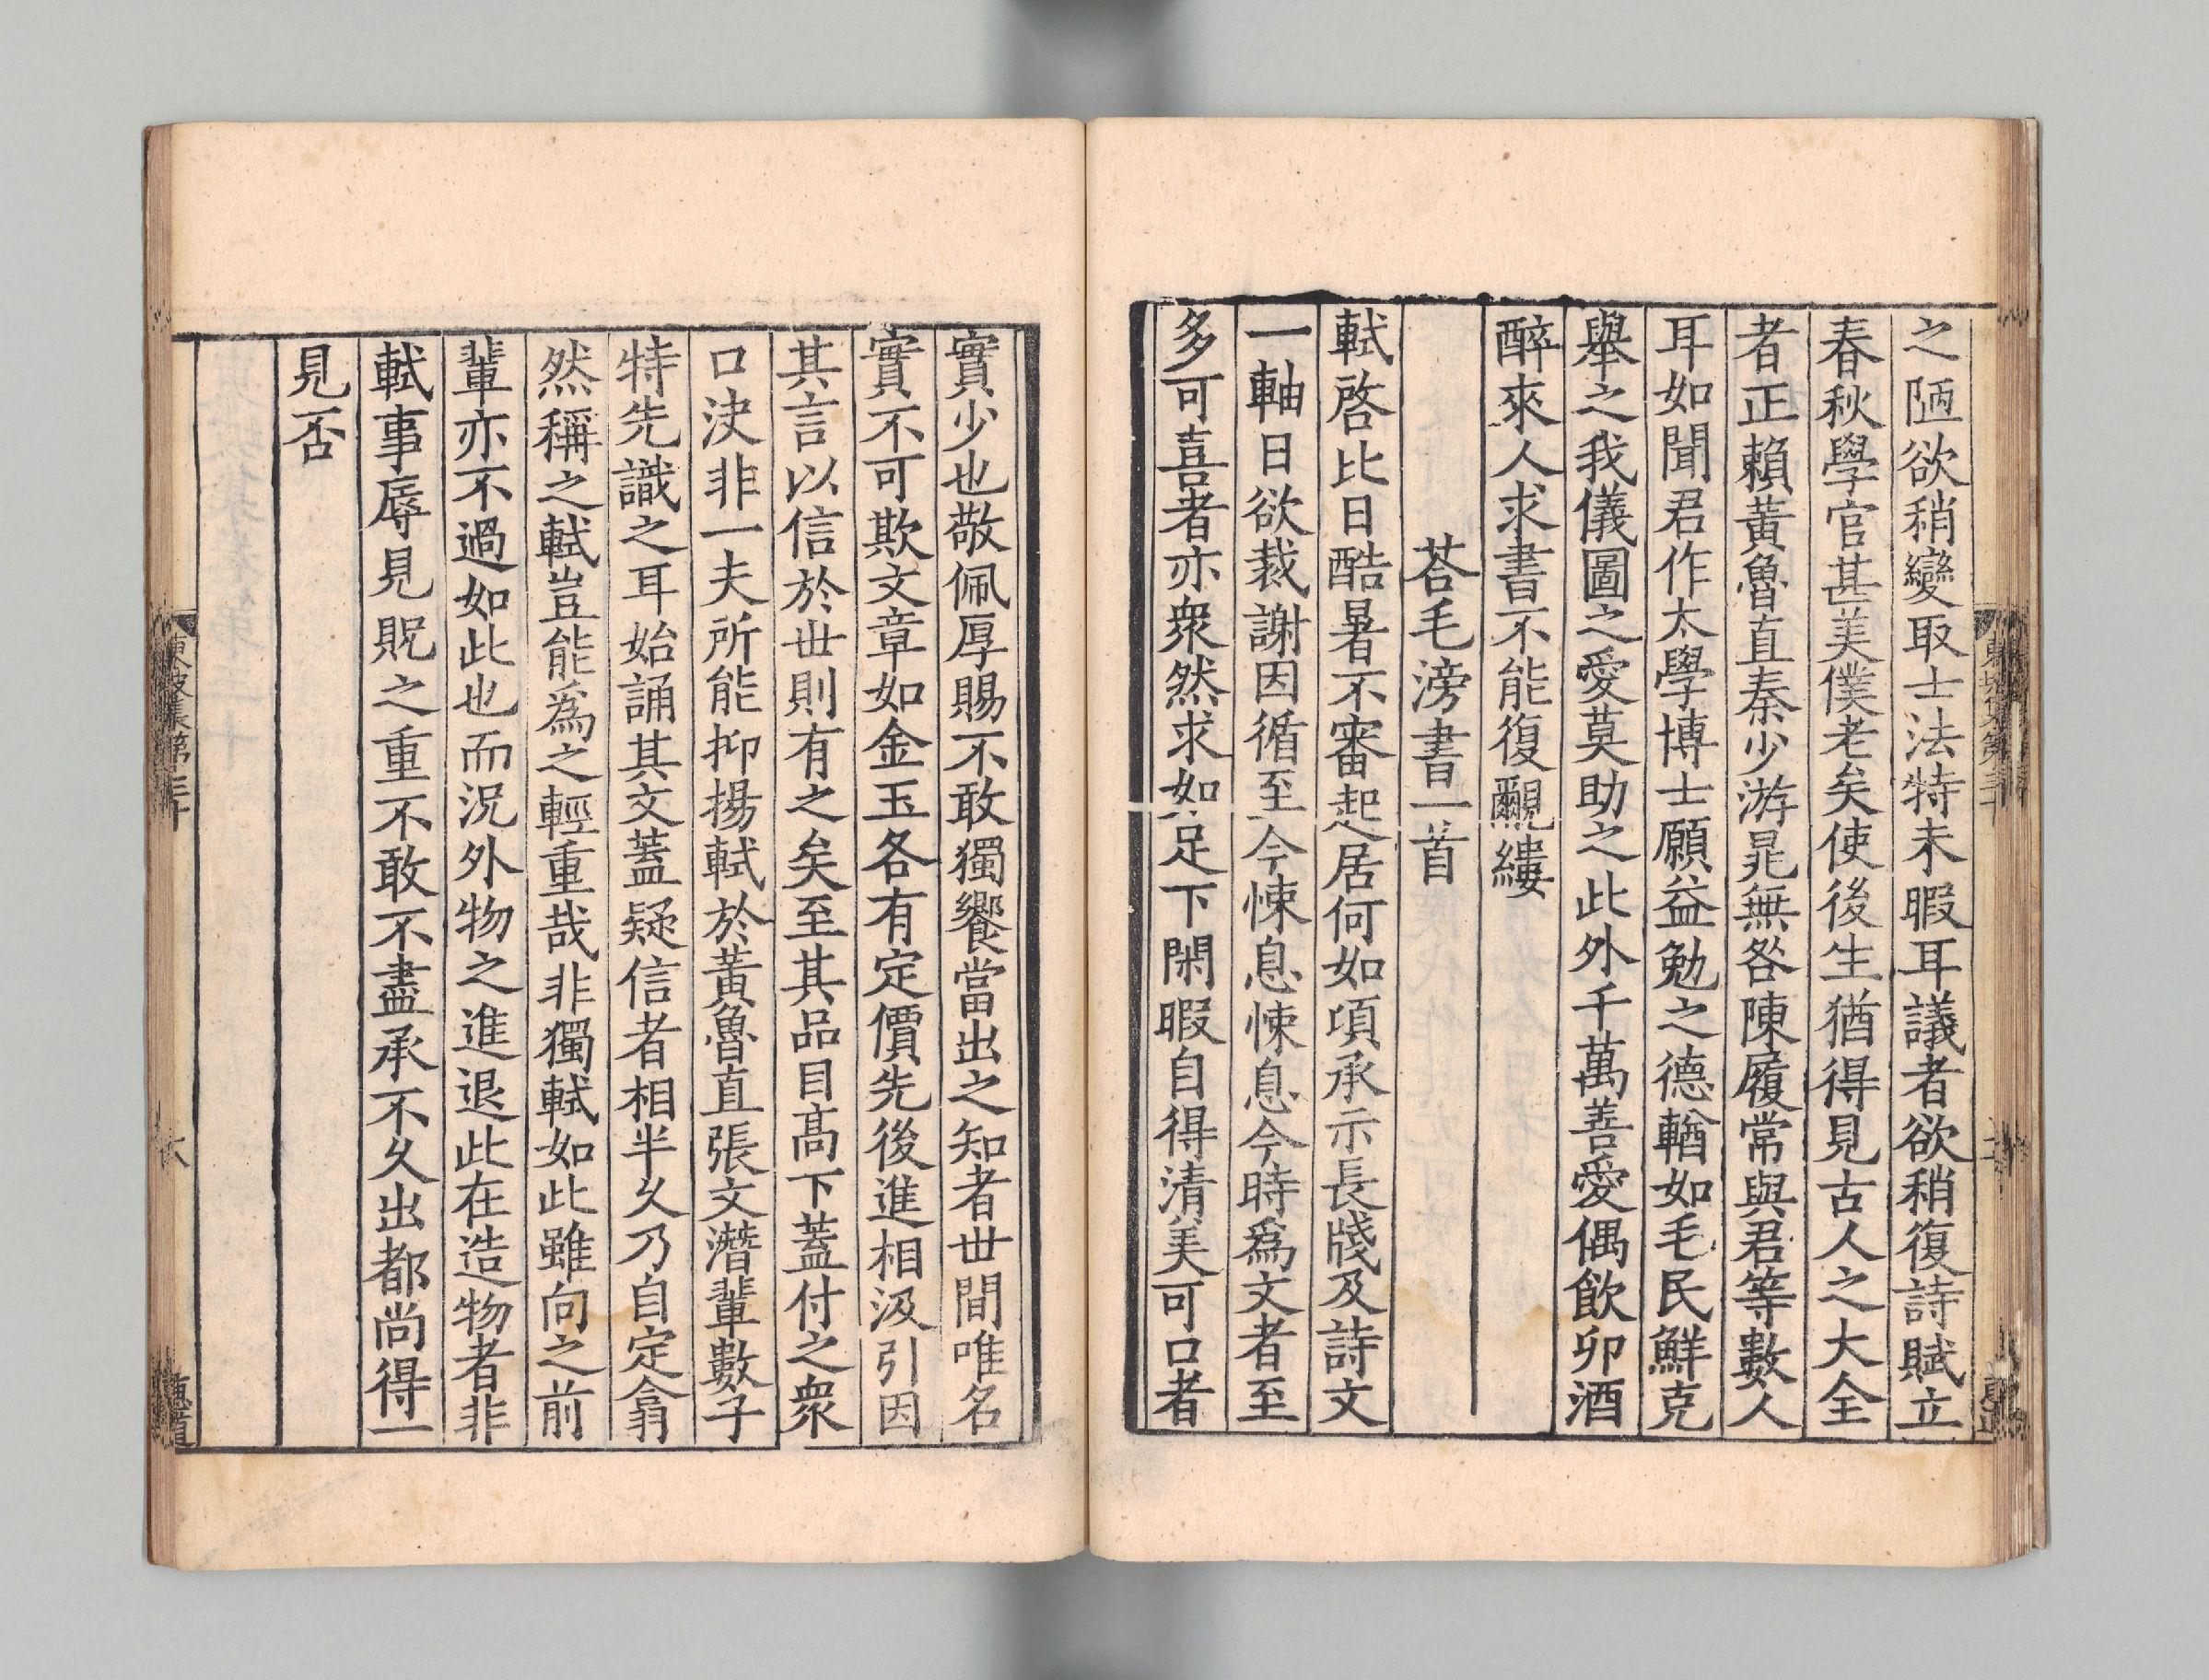 之陋欲稍變取士法特未暇耳議者欲稍復詩賦立
春秋學官甚美僕老矣使後生猶得見古人之大全
者正賴黃魯直秦少游晁無咎陳履常與君等數人
耳如聞君作太學博士願益勉之德輶如毛民鮮克
舉之我儀圖之愛莫助之此外千萬善愛偶飲卯酒
醉來人求書不能復覼縷
荅毛滂書一首
軾啓比日酷暑不審起居何如項承示長牋及詩文
一軸日欲裁謝因循至今悚息悚息今時爲文者至
多可喜者亦衆然求如足下閑暇自得清美可口者
實少也敬佩厚賜不敢獨饗當出之知者世間唯名
實不可欺文章如金玉各有定價先後進相汲引因
其言以信於世則有之矣至其品目高下蓋付之衆
口決非一夫所能抑揚軾於黃魯直張文潛輩數子
特先識之耳始誦其文蓋疑信者相半久乃自定翕
然稱之軾豈能爲之輕重哉非獨軾如此雖向之前
輩亦不過如此也而況外物之進退此在造物者非
軾事辱見貺之重不敢不盡承不久出都尚得一
見否
東坡集第三十
六